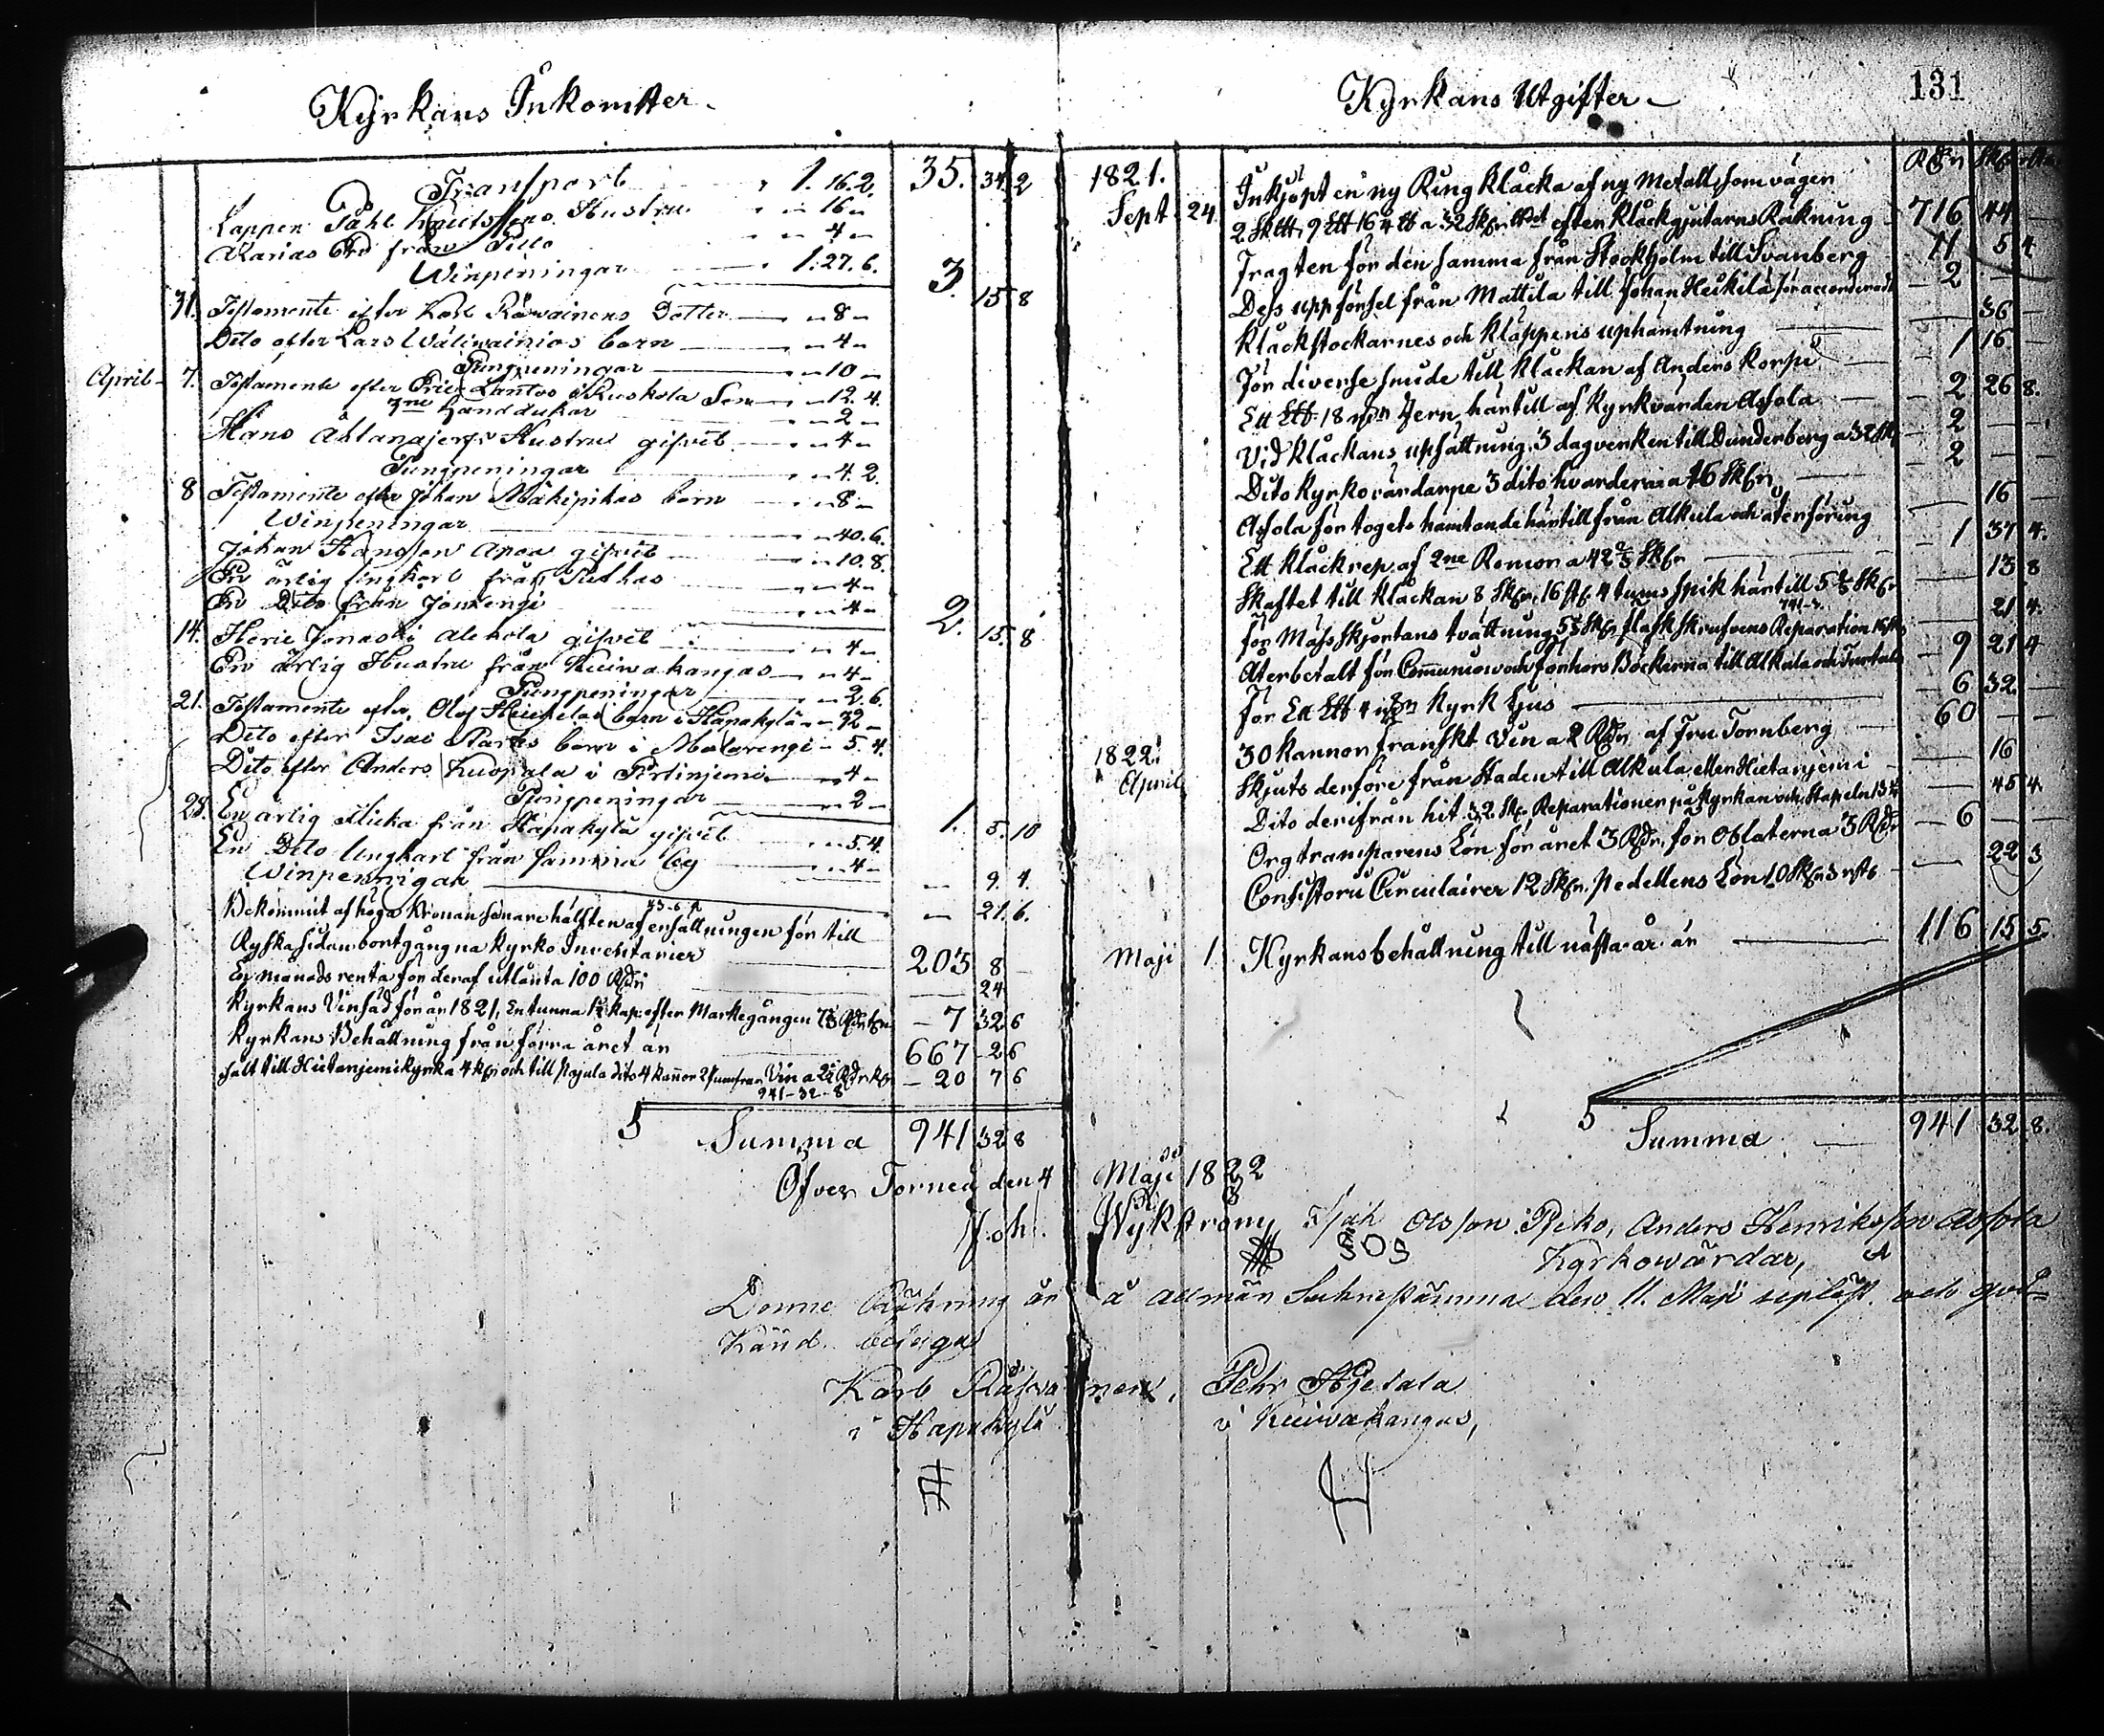 Kyrkans Inkomster
Transport 1. 16. 2. 35. 34. 2
Lappen Påhl Hustru 16
från 4
Winpeningar 1: 27. 6. 3. 15 8
31. Testamente efter Karl Räwainens Dotter 8
Dito efter Lars Wäliwainios barn 4
Pungpeningar 10
April 7. Testamente efter Eric Lantos i Ruskola Son 12. 4.
3ne handdukar 2
Hans Ahlanajerfs Hustru gifvit 4
Pungpeningar 4. 2.
8 Testamente efter Johan Mäkipikas barn 8
Winpeningar 40. 6.
Johan Hansson gifvit 10. 8.
En ärlig ungkarl från 4
En Dito från 4 2. 15. 8
14. gifvit 4
En ärlig Hustru från Kuiwakangas 4
Pungpeningar 2. 6.
21. Testamente efter Olof barn i Hapakylä 32
Dito efter Isac barn i Matarengi 5. 4.
Dito efter Anders Kuopala i Portimojerfvi 4
Pungpeningar 2 1. 5. 10
28. En ärlig Flicka från Hapakylä gifvit 5. 4
En Dito Ungkarl från samma by 4 9. 4.
Winpenningar 21. 6.
43-6
Bekommit af höga Kronan senare hälften af ersättningen för till
Ryska sidan bortgångna Kyrko Inventarier 203 8
En månads renta för deraf utlånta 100 Rdr 24
Kyrkans Vinsäd för år 1821, En tunna kap: efter Markegången 7 32 6
Kyrkans Behållning från förra året är 667 2 6
sålt till Hietaniemi kyrka 4 kr och till Pajula dito 4 kannor Vin a 20 7 6
941-32-8
Summa 941 32 8
Kyrkans Utgifter
131
1821.
Inkjöpt en ny Ringklåcka af ny Metall, som väger
Sept 24 efter Klåckgjutarns Räkning 716 44
Fragten för den samma från Stockholm till Svanberg 11 5 4
Dess uppförsel från Mattila till Johan Heikilä föraccorderadt 2
Klåckstockarnes och Kläppens uphämtning 36
För diverse smide till Klåckan af Anders Korpi 1 16
Ett 18 Jern, härtill af Kyrkvärden Assola 2 26 8.
Vid Klåckans uphättning, 3 dagverken till Dunderberg a 32 sk 2
Dito Kyrkovärdarne 3 dito hvardera a 16 Sk 2
Assola för togets hämtande härtill från Alkula och återföring 16
Ett Klåckrep af 2ne Remor a 42 2/3 Sk 1 37 4.
Skaftet till Klåckan 8 Sk, 16 st 4 tums spik härtill 5 2/3 Sk 13 8
741-3.
för Mässskjortans tvättning 5 1/3 Sk flaskskrufvens Reparation 16 sk 21 4.
Återbetalt för Communion och förhörs Böckerna till Alkula och Turtola 9 21 4
För Ett 4 Kyrk ljus 6 32
30 kannor franskt Vin a 2 Rdr af Fru Tornberg 60
1822.
April Skjuts derföre från Staden till Alkula eller Hietaniemi 16
Dito derifrån hit 32 Sk. Reparationer på Kyrkan och Stapeln 13 45 4.
Orgtramparens Lön för året 3 Rdr, för Oblaterna 3 Rdr 6
Consistorii Circulairer 12 Sk. Pedellens Lön 10 Sk 3 rst 22 3
Maji 1 Kyrkans behållning till näste år är 116 15 5.
Summa 941 32 8.
Öfver Torneå den 4 Maji 1822
Joh. Wykström Isak Olsson Piko, Anders Henriksson Assola
Kyrkowärdar,
Denne Räkning är å allmän Sockenstämma den 11. Maji upläst och god-
känd betyga
Karl Räfvainen, Pehr Hjetala
i Hapakylä i Kuiwakangas,